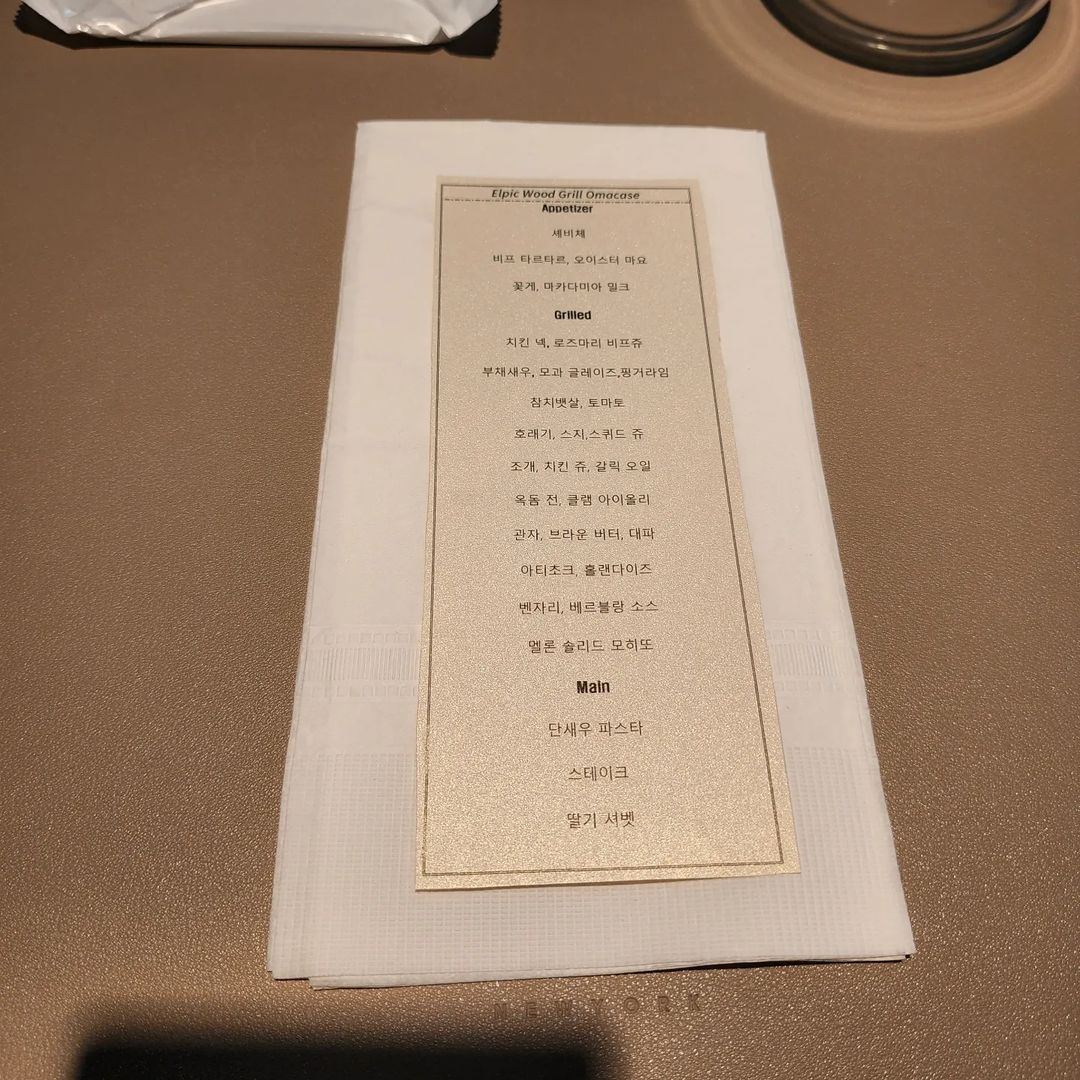 Elpic Wood Grill Omacase
Appetizer
세비체
비프 타르타르, 오이스터 마요
꽃게, 마카다미아 밀크
Grilled
치킨 넥, 로즈마리 비프쥬
부채새우, 모과 글레이즈,핑거라임
참치뱃살, 토마토
호래기, 스지,스퀴드 쥬
조개, 치킨 쥬, 갈릭 오일
옥돔 전, 클램 아이올리
관자, 브라운 버터, 대파
아티초크, 홀랜다이즈
벤자리, 베르블랑 소스
멜론 솔리드 모히또
Main
단새우 파스타
스테이크
딸기 셔벳
NEWYORK